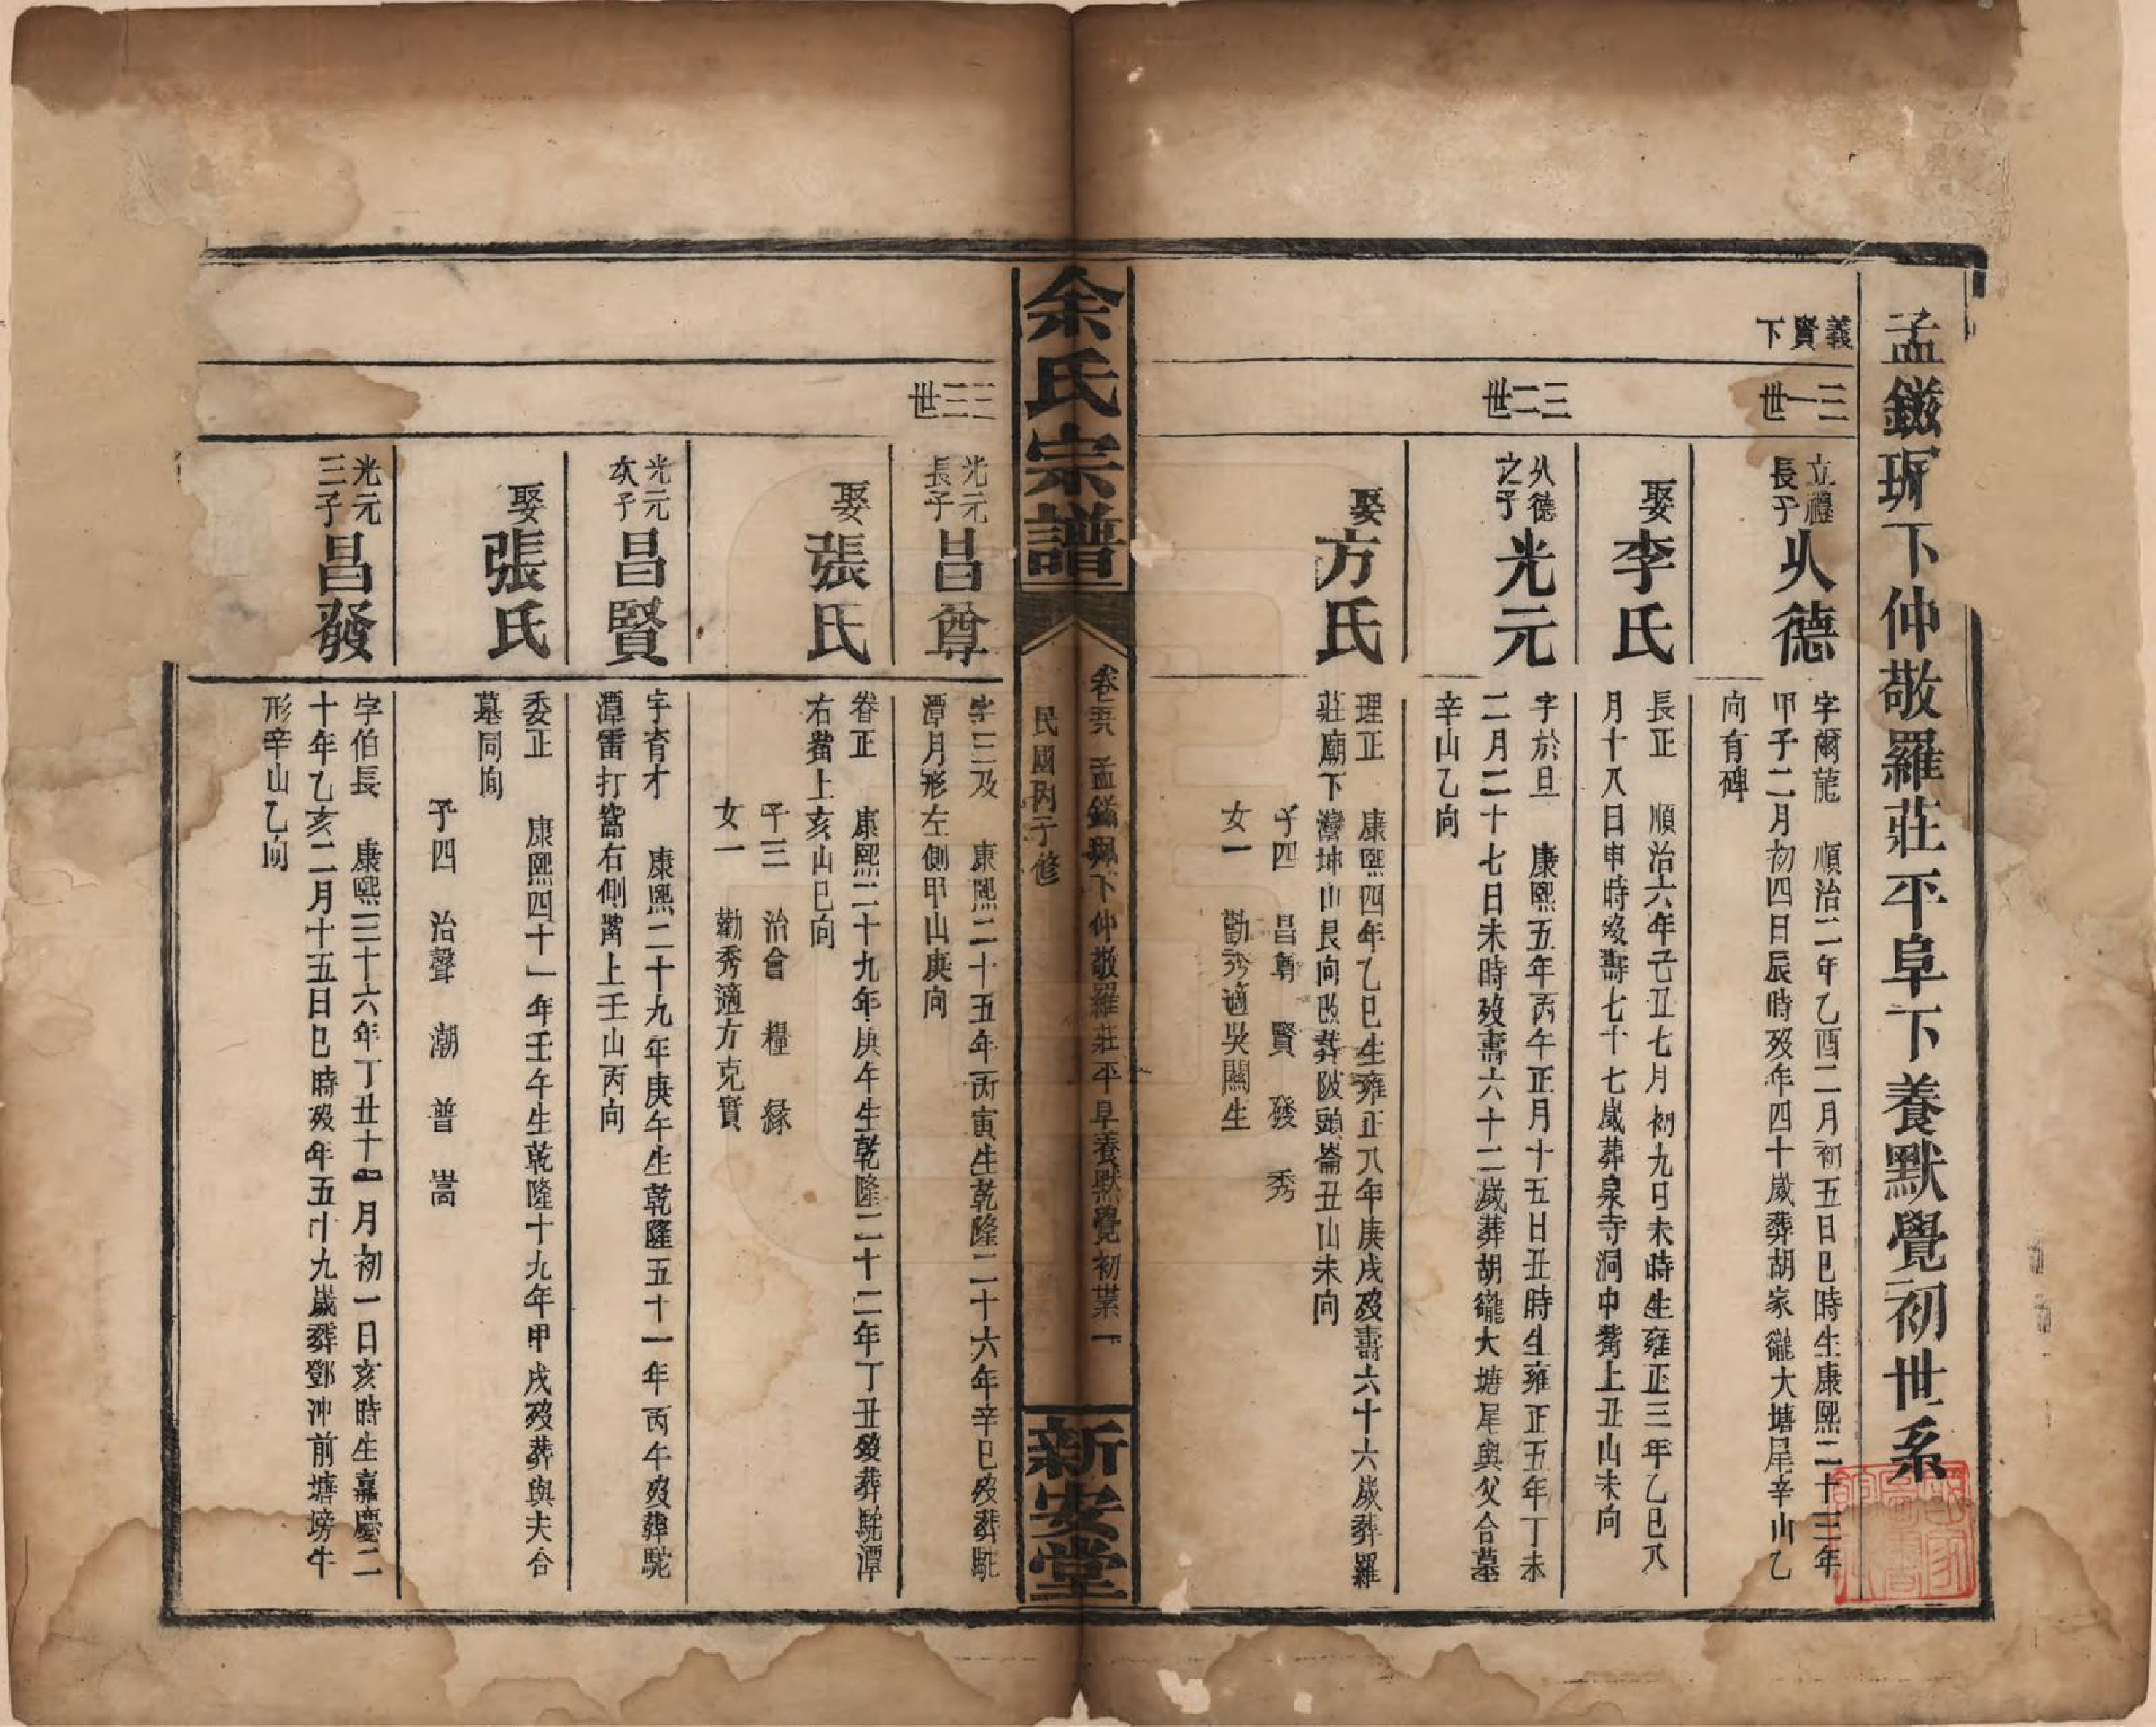 孟鎡珮下仲敬羅莊平阜下養默覺初世系
義賢下
三一世
立禮長子 火德
字爾龍 順治二年乙酉二月初五日巳時生康熙二十三年
甲子二月初四日辰時歿年四十歲葬胡家巃大塘尾辛山乙
向有碑
娶李氏
長正 順治六年己丑七月初九日未時生雍正三年乙巳八
月十八日申時歿壽七十七歲葬泉寺洞中嘴上丑山未向
三二世
火德之子 光元
字於旦 康熙五年丙午正月十五日丑時生雍正五年丁未
二月二十七日未時歿壽六十二歲葬胡巃大塘尾與父合墓
辛山乙向
娶方氏
理正 康熙四年乙巳生雍正八年庚戌歿壽六十六歲葬羅
莊廟下灣坤山艮向改葬陂頭崙丑山未向
子四 昌尊 賢 發 秀
女一 勸秀適吳關生
余氏宗譜
卷五 孟鎡珮下仲敬羅莊平阜養默覺初業 一
民國丙子修
新安堂
三三世
光元長子 昌尊
字三及 康熙二十五年丙寅生乾隆二十六年辛巳歿葬駝
潭月形左側甲山庚向
娶張氏
眷正 康熙二十九年庚午生乾隆二十二年丁丑歿葬駝潭
右嘴上亥山巳向
子三 治會 糧 緣
女一 勸秀適方克實
光元次子 昌賢
字育才 康熙二十九年庚午生乾隆五十一年丙午歿葬駝
潭雷打窩右側嘴上壬山丙向
娶張氏
委正 康熙四十一年壬午生乾隆十九年甲戌歿葬與夫合
墓同向
子四 治聲 潮 普 嵩
光元三子 昌發
字伯長 康熙三十六年丁丑十一月初一日亥時生嘉慶二
十年乙亥二月十五日巳時歿年五十九歲葬鄧沖前塘塝牛
形辛山乙向